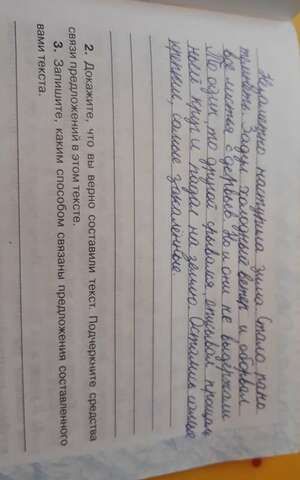 Незаметно наступила зима. Стало рано
темнеть. Задул холодный ветер и оборвал
все листья с деревьев. Но и они не выдержали
То один, то другой срывался описывал прощаль
ный круг и падал на землю. Остались самые
крепкие, самые закалённые
2. Докажите, что вы верно составили текст. Подчеркните средства
связи предложений в этом тексте.
3. Запишите, каким способом связаны предложения составленного
вами текста.